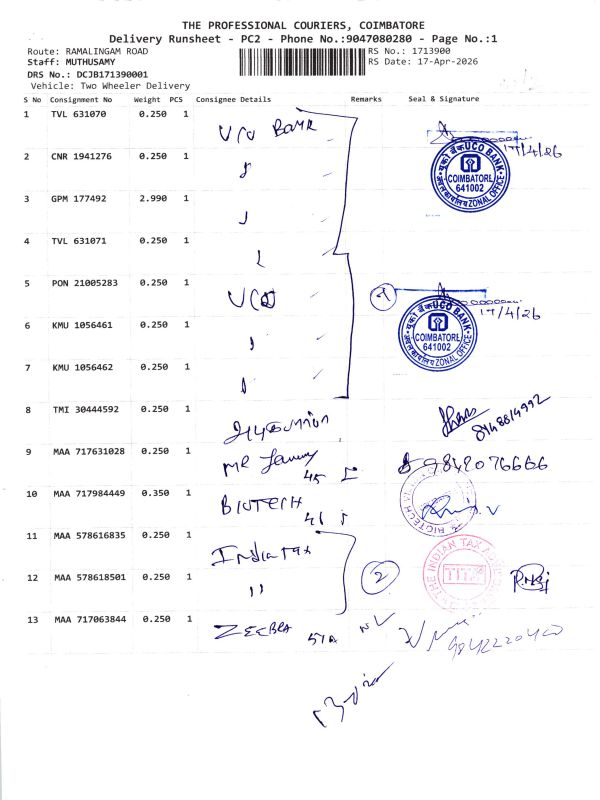 THE PROFESSIONAL COURIERS, COIMBATORE
Delivery Runsheet - PC2 - Phone No.:9047080280 - Page No.:1
Route: RAMALINGAM ROAD
RS No.: 1713900
Staff: MUTHUSAMY
RS Date: 17-Apr-2026
DRS No.: DCJB171390001
Vehicle: Two Wheeler Delivery
S No Consignment No Weight PCS Consignee Details Remarks Seal & Signature
1 TVL 631070 0.250 1 UCO BANK
17/4/26
2 CNR 1941276 0.250 1 "
UCO BANK COIMBATORE 641002 ZONAL OFFICE
3 GPM 177492 2.990 1 "
4 TVL 631071 0.250 1 "
5 PON 21005283 0.250 1 UCO
17/4/26
6 KMU 1056461 0.250 1 "
UCO BANK COIMBATORE 641002 ZONAL OFFICE
7 KMU 1056462 0.250 1 "
8 TMI 30444592 0.250 1
9 MAA 717631028 0.250 1 MR 45 9842076666
10 MAA 717984449 0.350 1 BIOTECH
BIOTECH
11 MAA 578616835 0.250 1 India Tax
THE INDIAN TAX
12 MAA 578618501 0.250 1 " 2
13 MAA 717063844 0.250 1 ZEEBRA